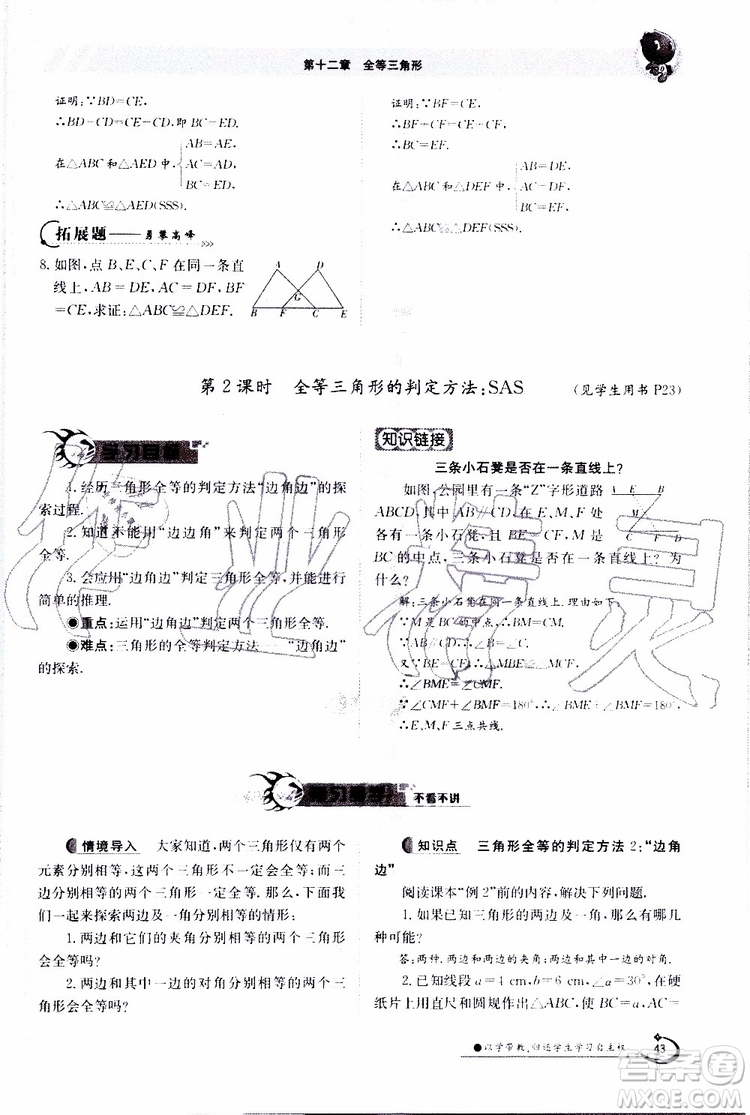 第十二章　全等三角形
证明：∵BD=CE，
∴BD-CD=CE-CD，即 BC=ED.
在△ABC和△AED中，
AB=AE，
AC=AD，
BC=ED，
∴△ABC≌△AED(SSS).
拓展题——勇攀高峰
8. 如图，点 B、E、C、F 在同一条直
线上，AB=DE，AC=DF，BF
=CE，求证：△ABC≌△DEF.
A D
G
B F C E
证明：∵BF=CE，
∴BF+CF=CE+CF，
∴BC=EF.
在△ABC和△DEF中，
AB=DE，
AC=DF，
BC=EF，
∴△ABC≌△DEF(SSS).
第2课时　全等三角形的判定方法：SAS　（见学生用书P23）
学习目标
1. 经历三角形全等的判定方法“边角边”的探
索过程.
2. 知道不能用“边边角”来判定两个三角形
全等.
3. 会应用“边角边”判定三角形全等，并能进行
简单的推理.
●重点：运用“边角边”判定两个三角形全等.
●难点：三角形的全等判定方法——“边角边”
的探索.
知识链接
三条小石凳是否在一条直线上？
如图，公园里有一条“Z”字形道路
ABCD，其中AB∥CD，在E，M，F处
各有一条小石凳，且BE=CF，M是
BC的中点，三条小石凳是否在一条直线上？为
什么？
解：三条小石凳在同一条直线上. 理由如下：
∵M是BC的中点，∴BM=CM.
∵AB∥CD，
又∵BE=CF，∴△MBE≌△MCF.
∴∠BME=∠CMF.
∵∠CMF+∠BMF=180°，∴∠BME+∠BMF=180°，
∴E，M，F三点共线.
不看不讲
情境导入　大家知道，两个三角形仅有两个
元素分别相等，这两个三角形不一定全等，而三
边分别相等的两个三角形全等. 下面，我们一
起来探索两边及一角分别相等的情形：
1. 两边和它们的夹角分别相等的两个三角
形会全等吗？
2. 两边和其中一边的对角分别相等的两个三
角形会全等吗？
知识点　三角形全等的判定方法2：“边角
边”
阅读课本“例2”前的内容，解决下列问题.
1. 如果已知三角形的两边及一角，有哪几种
可能？
答：两种. 两边和两边的夹角；两边和其中一边的对角.
2. 已知线段a=4 cm，b=6 cm，∠α=30°，在硬
纸片上用直尺和圆规作出△ABC，使BC=a，AC=
●以学带教，归还学生学习自主权
43
作业精灵
答案圈
MXQE.COM